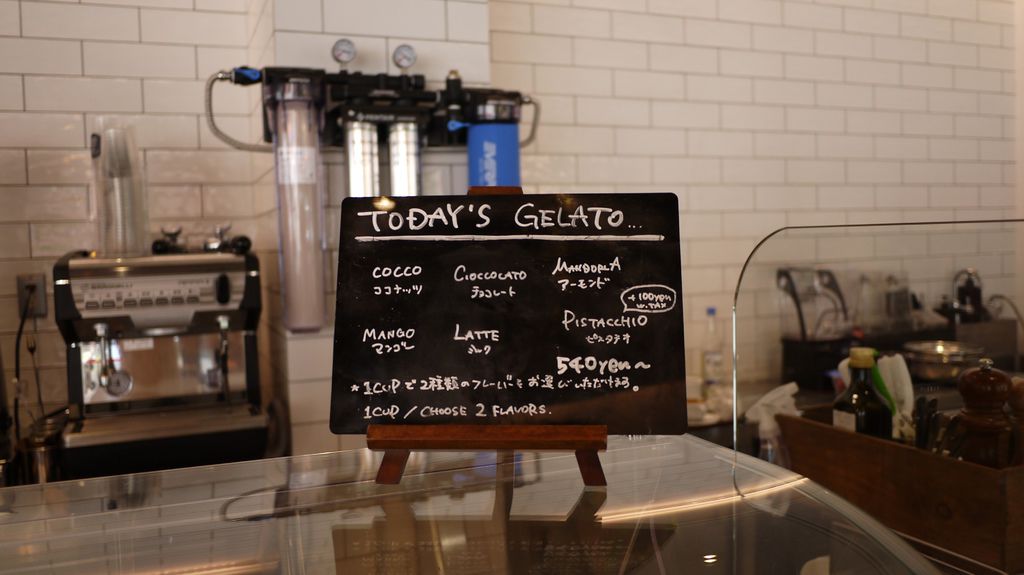 TODAY'S GELATO...
COCCO
ココナッツ
CIOCCOLATO
チョコレート
MANDORLA
アーモンド
MANGO
マンゴー
LATTE
ミルク
+100yen
PISTACCHIO
ピスタチオ
540yen~
*1CUPで2種類のフレーバーをお選びいただけます。
1CUP / CHOOSE 2 FLAVORS.